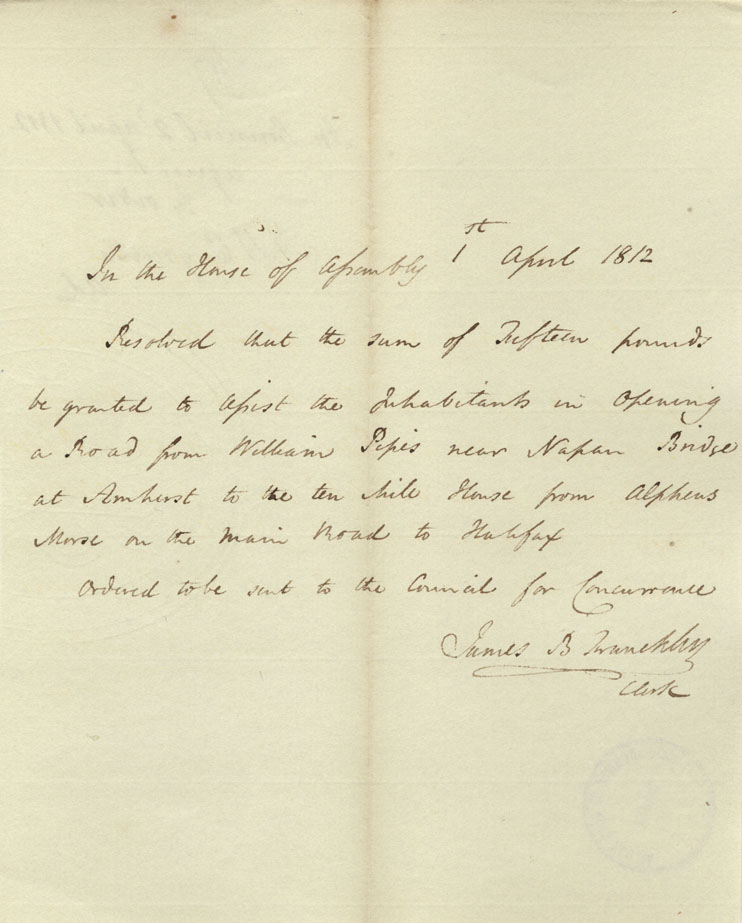 In the House of Assembly 1st April 1812
Resolved that the sum of Fifteen pounds
be granted to Assist the Inhabitants in Opening
a Road from William Pipes near Napan Bridge
at Amherst to the ten Mile House from Alpheus
Morse on the Main Road to Halifax
Ordered to be sent to the Council for Concurrence
James B Franckly
Clerk